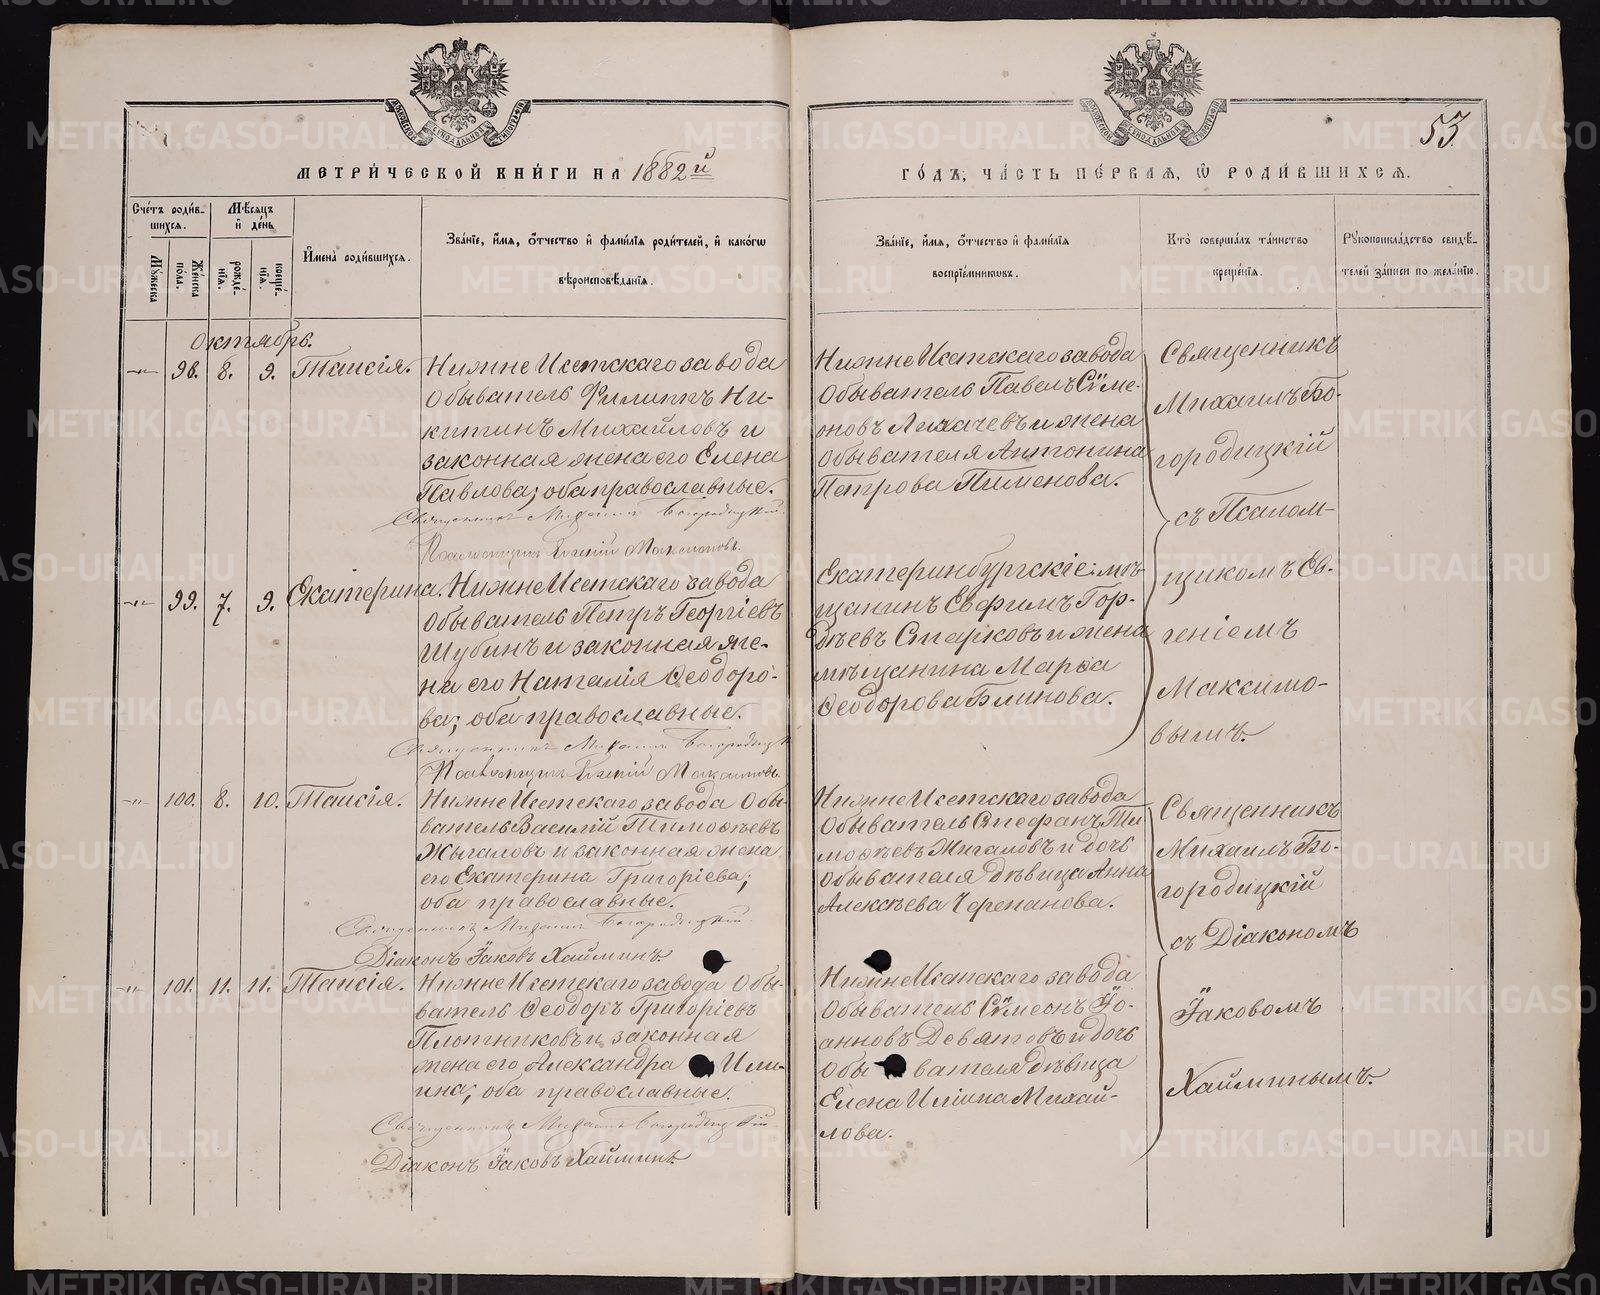 МЕТРИ́ЧЕСКОЙ КНИ́ГИ НА 1882й
ГО́ДЪ, ЧА́СТЬ ПЕ́РВАЯ, Ѡ РОДИ́ВШИХСЯ.
53
Сче́тъ роди́в-
шихся.
Мужеска
Же́нска
по́ла.
Мѣ́сяцъ
и де́нь
рожде́-
нїя.
креще́-
нїя.
И́мена̀ роди́вшихся.
Зва́нїе, и́мя, ѻ́тчество и фами́лїя роди́телей, и како́гѡ
вѣроисповѣ́данїя.
Зва́нїе, и́мя, ѻ́тчество и фами́лїя
воспрїе́мниковъ.
Кто̀ соверша́лъ та́инство
креще́нїя.
Рꙋкоприкла́дство свидѣ́-
телей за́писи по жела́нїю.
Октябрь.
-"- 98. 8. 9. Таисія.
Нижне Исетскаго завода
обыватель Филиппъ Ни-
китинъ Михайловъ и
законная жена его Елена
Павлова; оба православные.
Священникъ Михаилъ Богородицкій
Псаломщикъ Евгеній Максимовъ.
Нижне Исетскаго завода
обыватель Павелъ Сѵме-
оновъ Лихачевъ и жена
обывателя Антонина
Петрова Пименова.
Священникъ
Михаилъ Бо-
городицкій
съ Псалом-
щикомъ Ев-
геніемъ
Максимо-
вымъ.
-"- 99. 7. 9. Екатерина.
Нижне Исетскаго завода
обыватель Петръ Георгіевъ
Шубинъ и законная же-
на его Наталія Ѳеодоро-
ва; оба православные.
Священникъ Михаилъ Богородицкій
Псаломщикъ Евгеній Максимовъ.
Екатеринбургскіе: мѣ-
щанинъ Евфимъ Гор-
дѣевъ Старковъ и жена
мѣщанина Марѳа
Ѳеодорова Блинова.
-"- 100. 8. 10. Таисія.
Нижне Исетскаго завода обы-
ватель Василій Тимоѳѣевъ
Жыгаловъ и законная жена
его Екатерина Григоріева;
оба православные.
Священникъ Михаилъ Богородицкій
Діаконъ Іаковъ Хайминъ.
Нижне Исетскаго завода
обыватель Стефанъ Ти-
моѳѣевъ Жигаловъ и дочь
обывателя дѣвица Анна
Алексѣева Черепанова.
Священникъ
Михаилъ Бо-
городицкій
съ Діакономъ
Іаковомъ
Хайминымъ.
-"- 101. 11. 11. Таисія.
Нижне Исетскаго завода обы-
ватель Ѳеодоръ Григоріевъ
Плотниковъ и законная
жена его Александра Или-
ина; оба православные.
Священникъ Михаилъ Богородицкій
Діаконъ Іаковъ Хайминъ.
Нижне Исетскаго завода
обыватель Сѵмеонъ Іо-
анновъ Девятовъ и дочь
обывателя дѣвица
Елена Иліина Михай-
лова.
METRIKI.GASO-URAL.RU